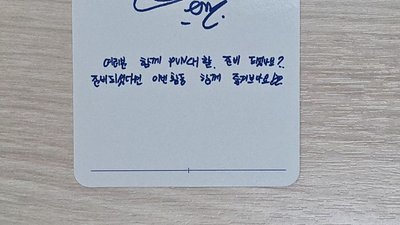 여러분 함께 PUNCH할 준비 되셨나요?
준비되셨다면 이번활동 함께 즐겨보아요!